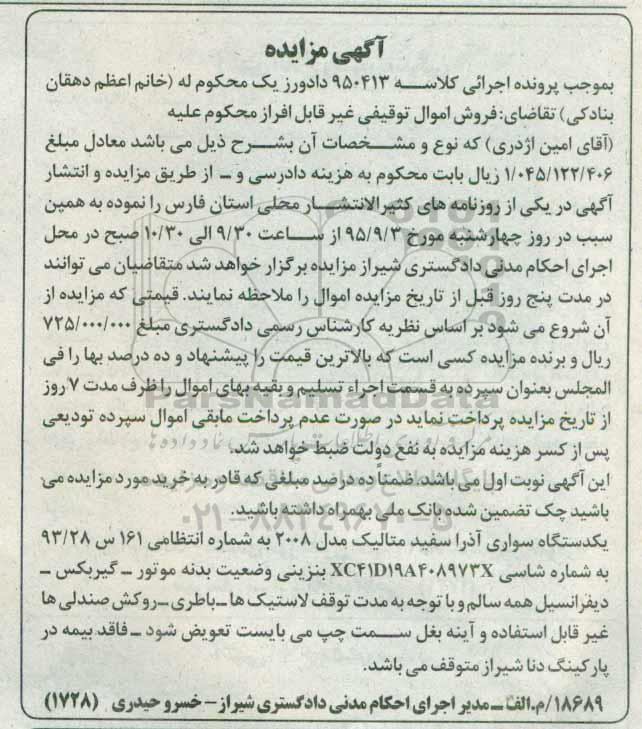 آگهی مزایده
بموجب پرونده اجرائی کلاسه ۹۵۰۴۱۳ دادورز یک محکوم له (خانم اعظم دهقان
بنادکی) تقاضای: فروش اموال توقیفی غیر قابل افراز محکوم علیه
(آقای امین اژدری) که نوع و مشخصات آن بشرح ذیل می باشد معادل مبلغ
۱/۰۴۵/۱۲۲/۴۰۶ ریال بابت محکوم به هزینه دادرسی و ـ از طریق مزایده و انتشار
آگهی در یکی از روزنامه های کثیرالانتشار محلی استان فارس را نموده به همین
سبب در روز چهارشنبه مورخ ۹۵/۹/۳ از ساعت ۹/۳۰ الی ۱۰/۳۰ صبح در محل
اجرای احکام مدنی دادگستری شیراز مزایده برگزار خواهد شد متقاضیان می توانند
در مدت پنج روز قبل از تاریخ مزایده اموال را ملاحظه نمایند. قیمتی که مزایده از
آن شروع می شود بر اساس نظریه کارشناس رسمی دادگستری مبلغ ۷۲۵/۰۰۰/۰۰۰
ریال و برنده مزایده کسی است که بالاترین قیمت را پیشنهاد و ده درصد بها را فی
المجلس بعنوان سپرده به قسمت اجراء تسلیم و بقیه بهای اموال را ظرف مدت ۷ روز
از تاریخ مزایده پرداخت نماید در صورت عدم پرداخت مابقی اموال سپرده تودیعی
پس از کسر هزینه مزایده به نفع دولت ضبط خواهد شد.
این آگهی نوبت اول می باشد.ضمناً ده درصد مبلغی که قادر به خرید مورد مزایده می
باشید چک تضمین شده بانک ملی بهمراه داشته باشید.
یکدستگاه سواری آذرا سفید متالیک مدل ۲۰۰۸ به شماره انتظامی ۱۶۱ س ۹۳/۲۸
به شماره شاسی XC۴۱D۱۹A۴۰۸۹۷۳X بنزینی وضعیت بدنه موتور ـ گیربکس ـ
دیفرانسیل همه سالم و با توجه به مدت توقف لاستیک ها ـ باطری ـ روکش صندلی ها
غیر قابل استفاده و آینه بغل سمت چپ می بایست تعویض شود ـ فاقد بیمه در
پارکینگ دنا شیراز متوقف می باشد.
۱۸۶۸۹/م.الف ـ مدیر اجرای احکام مدنی دادگستری شیراز – خسرو حیدری (۱۷۲۸)
ParsNamadData
۰۲۱-۸۸۳۴۹۶۷۰-۵